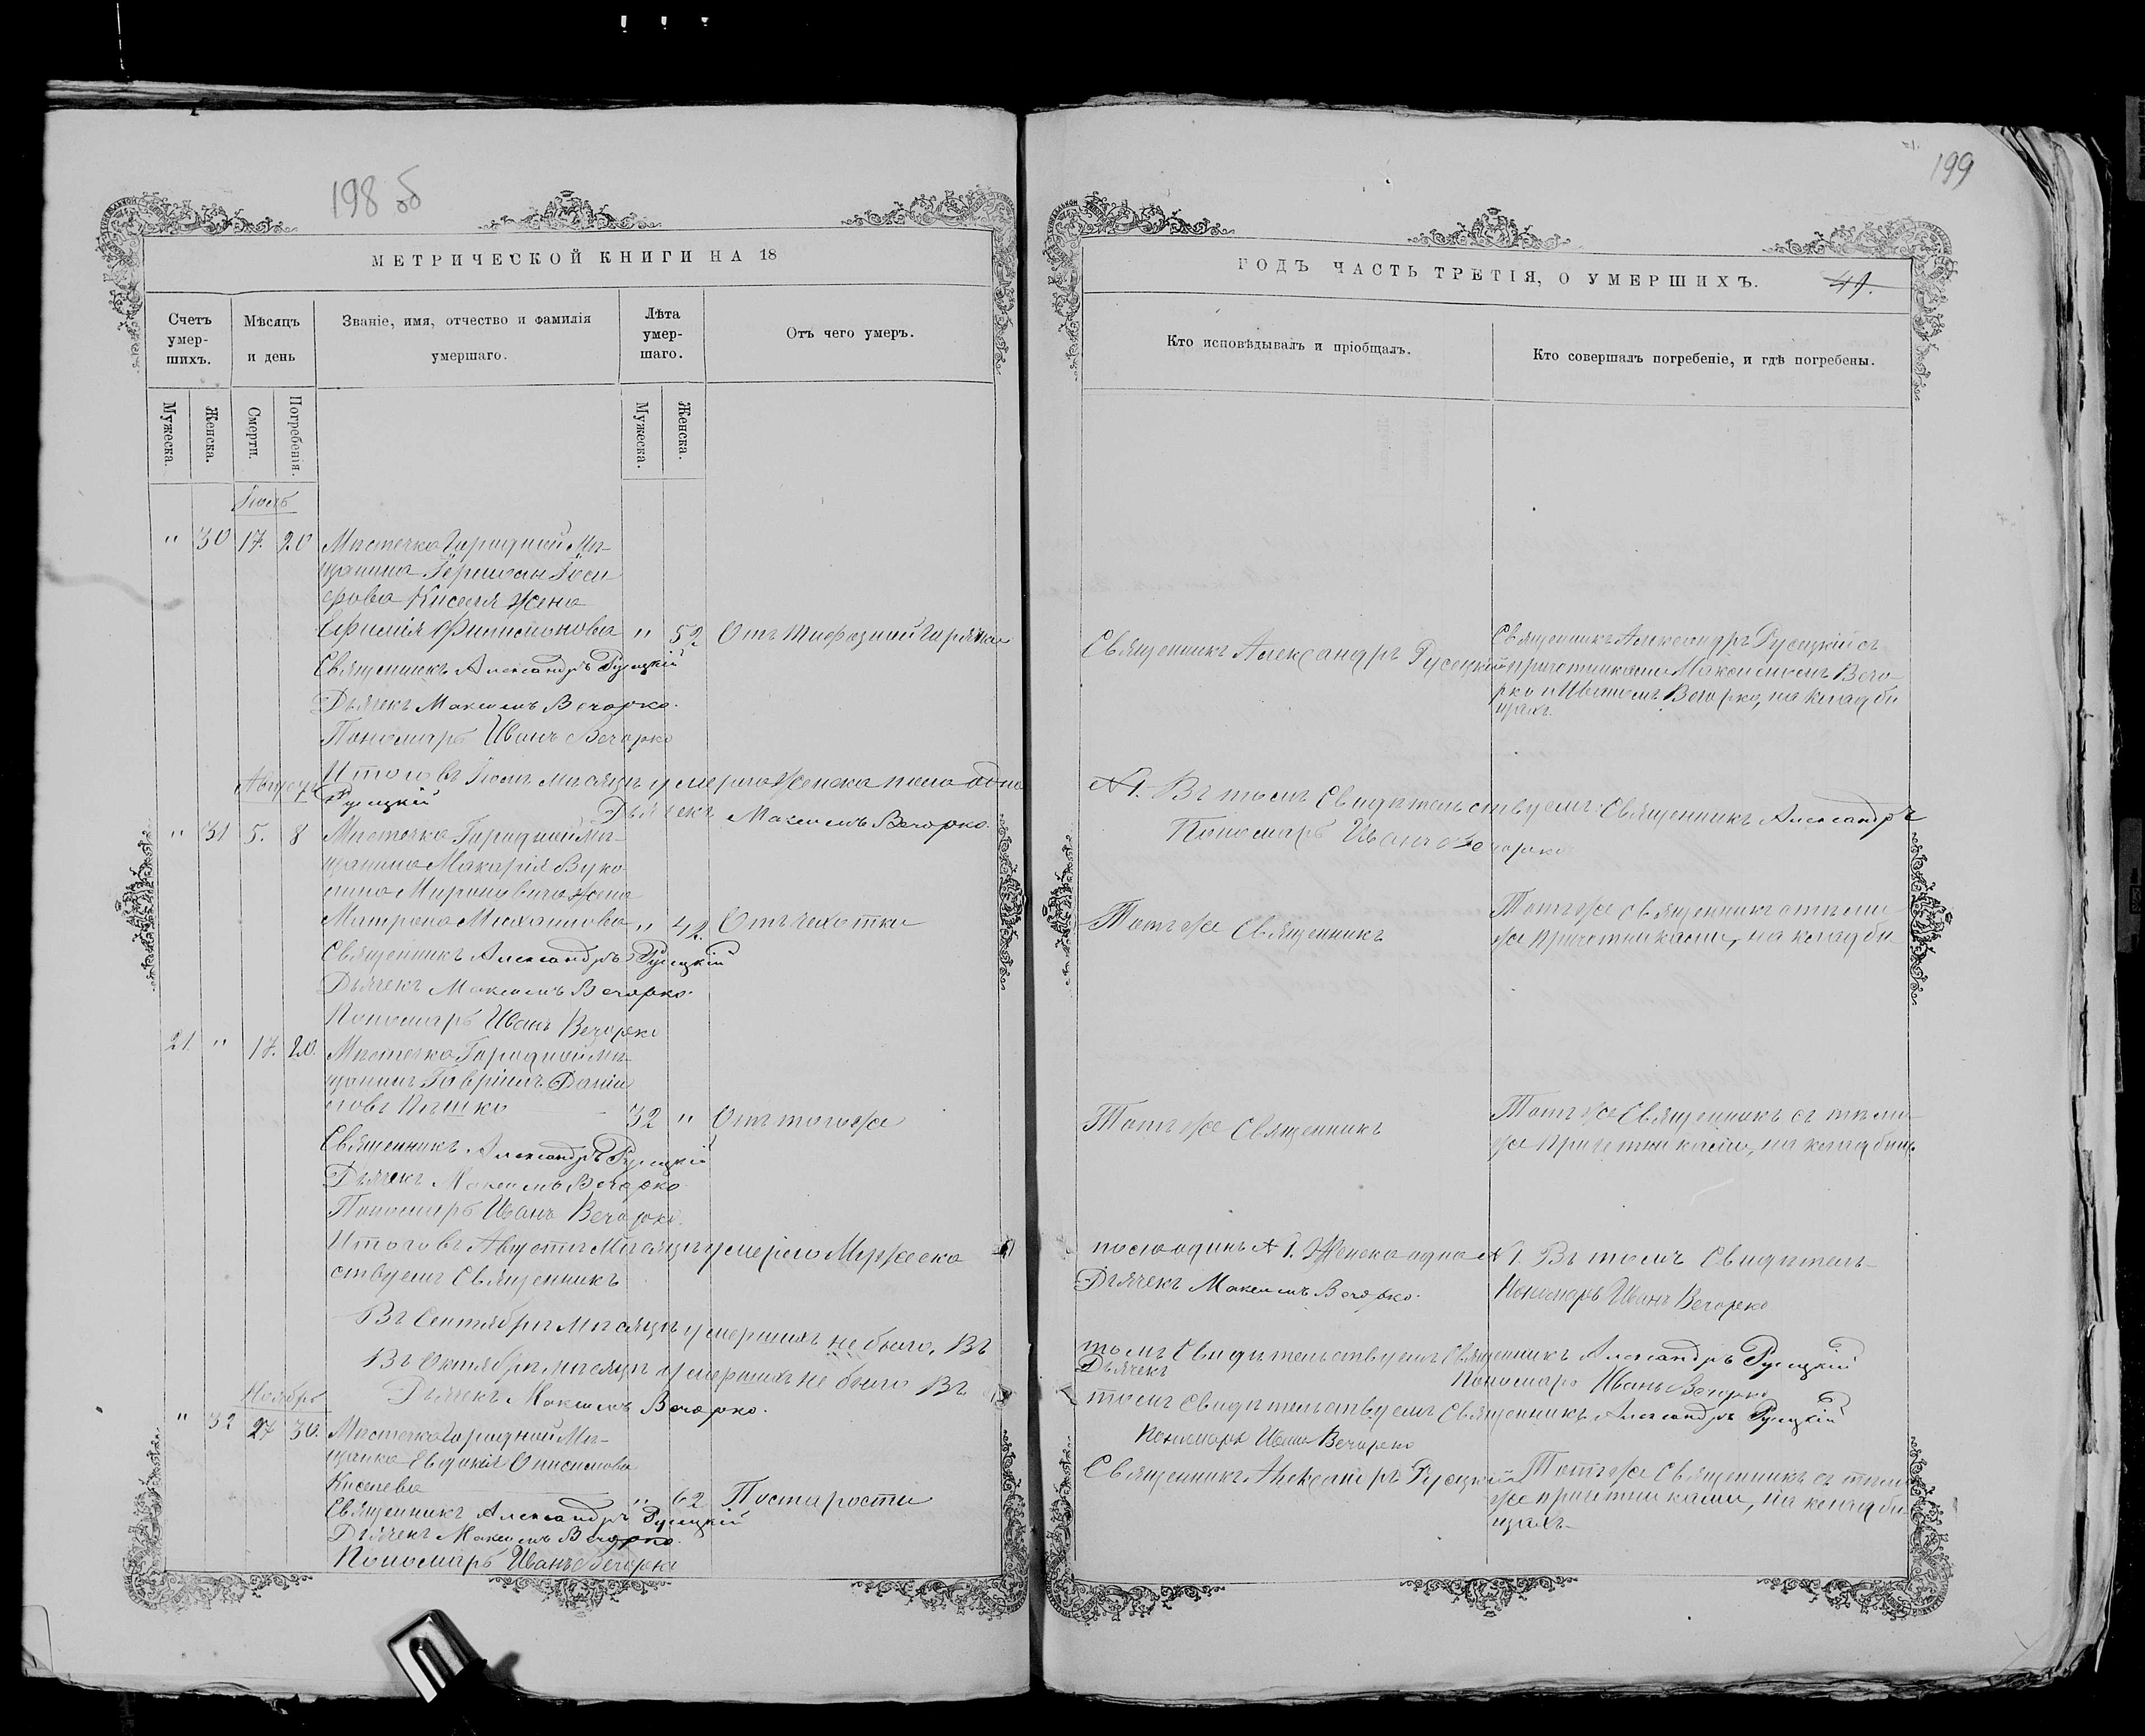 198 об
МЕТРИЧЕСКОЙ КНИГИ НА 18
Счетъ умер-шихъ.
Мѣсяцъ и день
Званіе, имя, отчество и фамилія умершаго.
Лѣта умер-шаго.
Отъ чего умеръ.
Мужеска.
Женска.
Смерти.
Погребенія.
Мужеска.
Женска.
Іюль
" 30 17. 20 Мѣстечка Городной Мѣ-
щанина
Киселя жена
" 52
Священникъ Александръ Русецкій
Дьячекъ Максимъ Вечорко.
Пономарь Иванъ Вечорко
Итого въ Іюлѣ мѣсяцѣ умерло Женска пола одна
Августъ
Русецкій
Дьячекъ Максимъ Вечорко.
" 31 5. 8 Мѣстечка Городной Мѣ-
щанина Макарія Вуко-
жена
" 42. Отъ чахотки
Священникъ Александръ Русецкій
Дьячекъ Максимъ Вечорко.
Пономарь Иванъ Вечорко
21. " 17. 20. Мѣстечка Городной мѣ-
щанинъ Гавріилъ Даніи-
ловъ
32 " Отъ того же
Священникъ Александръ Русецкій
Дьячекъ Максимъ Вечорко
Пономарь Иванъ Вечорко.
Итого въ Августѣ Мѣсяцѣ умерло Мужеска
ствуемъ Священникъ
Въ Сентябрѣ Мѣсяцѣ умершихъ не было. Въ
Въ Октябрѣ мѣсяцѣ умершихъ не было Въ
Дьячекъ Максимъ Вечорко.
Ноябрь
" 32 27 30. Мѣстечка Городной Мѣ-
щанка Евдокія Онисимова
Киселева
" 62 По старости
Священникъ Александръ Русецкій
Дьячекъ Максимъ Вечорко.
Пономарь Иванъ Вечорко
199
ГОДЪ ЧАСТЬ ТРЕТІЯ, О УМЕРШИХЪ.
41.
Кто исповѣдывалъ и пріобщалъ.
Кто совершалъ погребеніе, и гдѣ погребены.
Священникъ Александръ Русецкій
Священникъ Александръ Русецкій съ
причетниками Максимомъ Вечо-
рко и Иваномъ Вечорко, на кладби-
щахъ.
№ 1. Въ томъ Свидѣтельствуемъ: Священникъ Александръ
Пономарь Иванъ Вечорко
Тотъ же Священникъ
Тотъ же священникъ съ тѣми-
же причетниками, на кладби-
Тотъ же Священникъ
Тотъ же Священникъ съ тѣми-
же причетниками, на кладбищ.
пола одинъ № 1. Женска одна № 1. Въ томъ Свидѣтель-
Дьячекъ Максимъ Вечорко.
Пономарь Иванъ Вечорко
томъ Свидѣтельствуемъ Священникъ Александръ Русецкій
Дьячекъ
Пономарь Иванъ Вечорко
томъ Свидѣтельствуемъ Священникъ Александръ Русецкій
Пономарь Иванъ Вечорко
Священникъ Александръ Русецкій
Тотъ же Священникъ съ тѣми
же причетниками, на кладби-
щахъ.